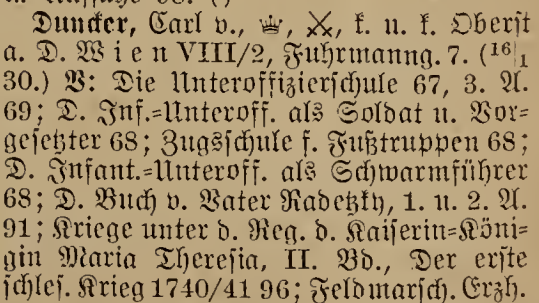 Duncker, Carl v., ♕, ⚔, k. u. k. Oberst
a. D. Wien VIII/2, Fuhrmanng. 7. (16/1
30.) V: Die Unteroffizierschule 67, 3. A.
69; D. Inf.=Unteroff. als Soldat u. Vor=
gesetzter 68; Zugsschule f. Fußtruppen 68;
D. Infant.=Unteroff. als Schwarmführer
68; D. Buch v. Vater Radetzky, 1. u. 2. A.
91; Kriege unter d. Reg. d. Kaiserin=Köni=
gin Maria Theresia, II. Bd., Der erste
schles. Krieg 1740/41 96; Feldmarsch. Erzh.